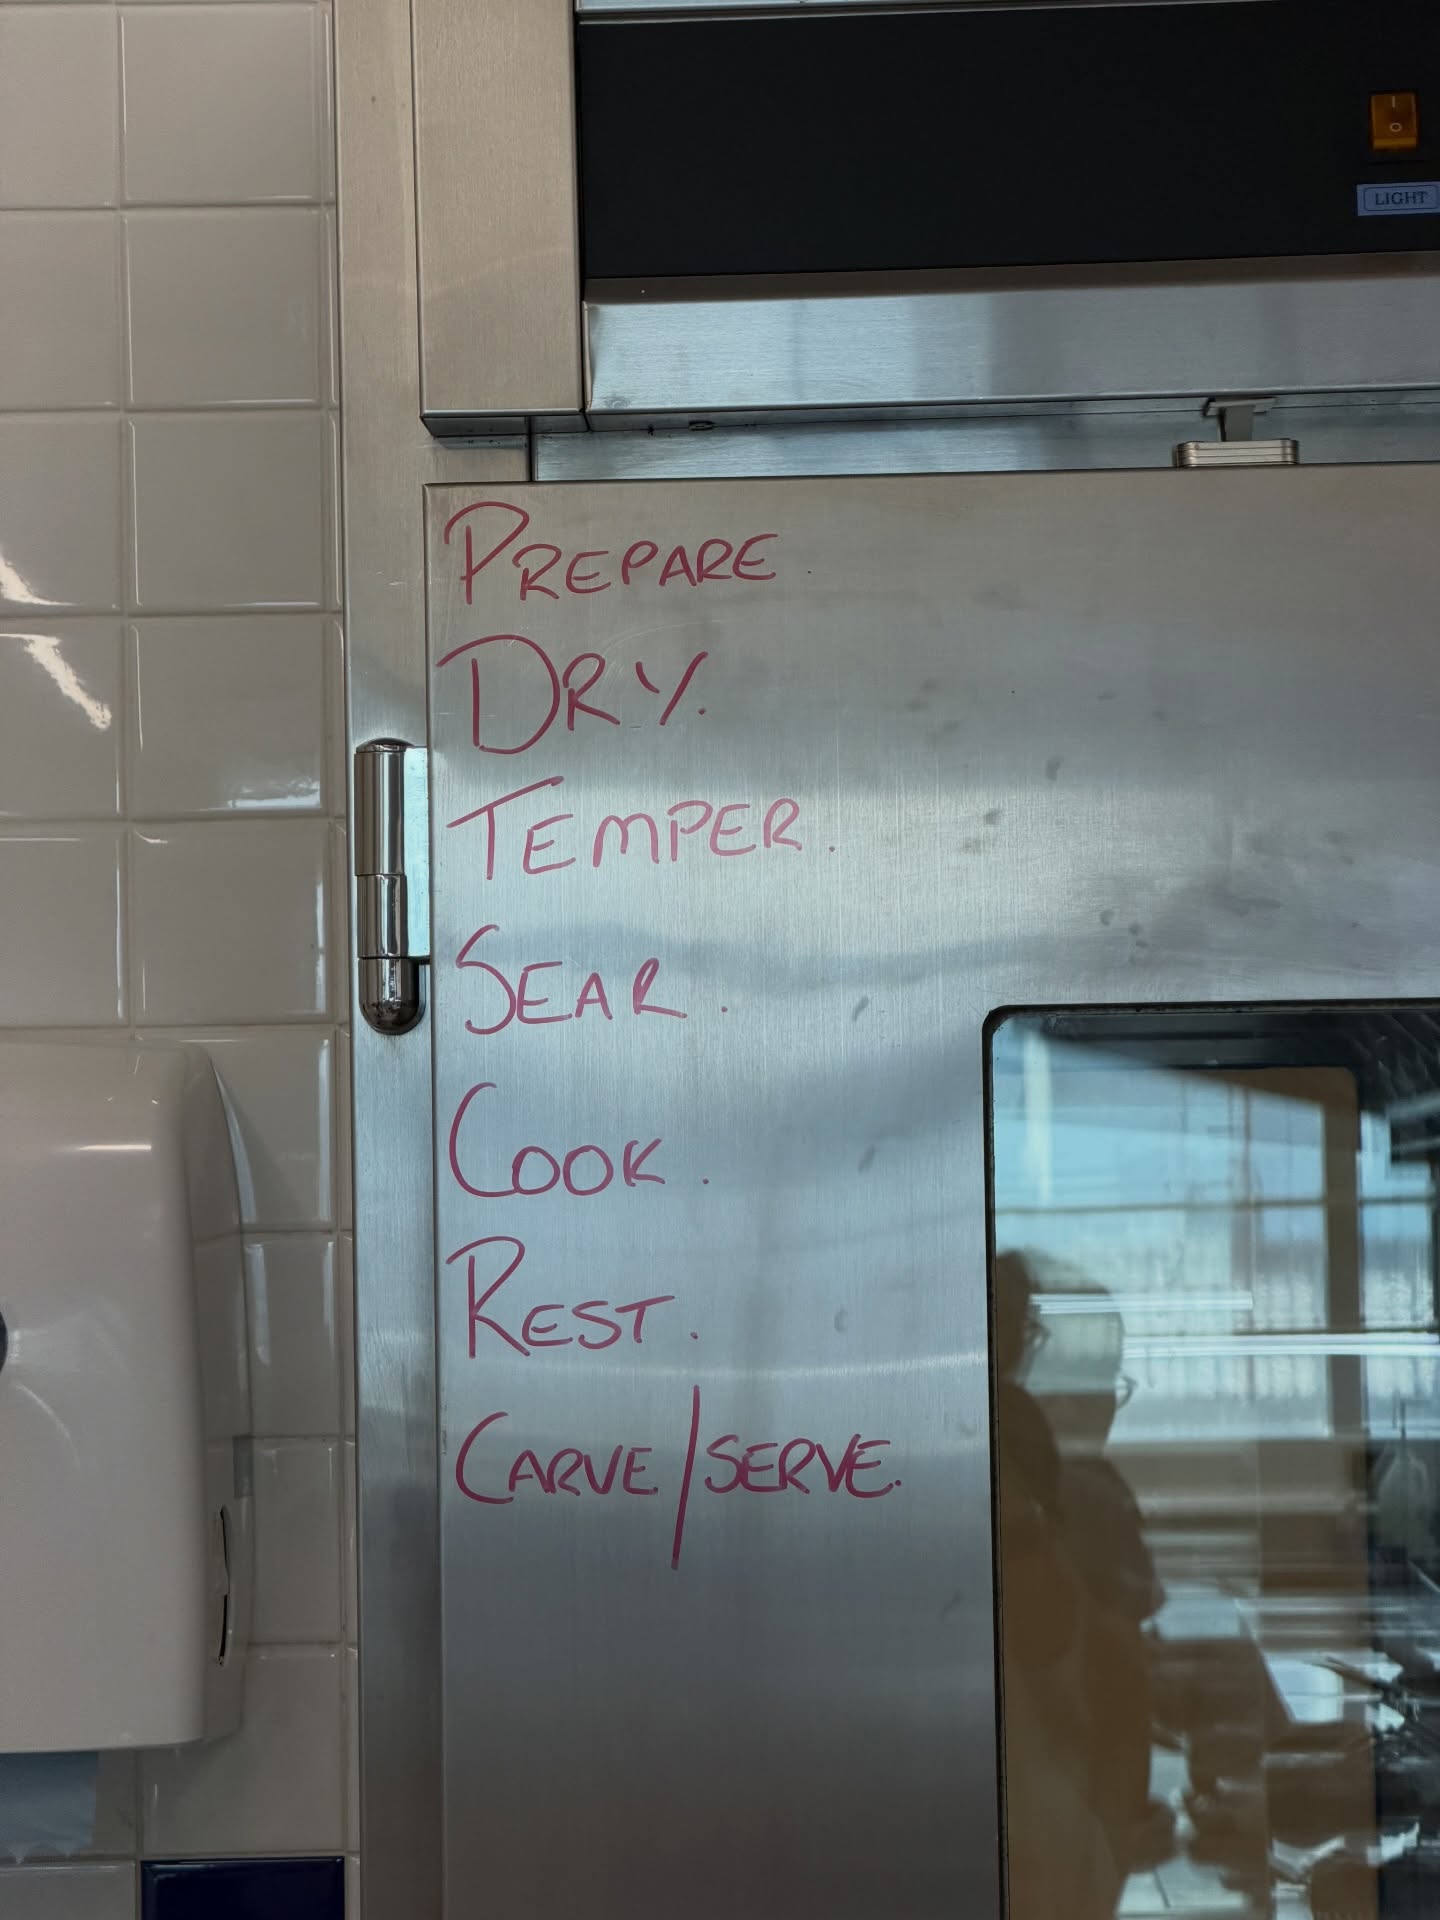 LIGHT
PREPARE.
DRY.
TEMPER.
SEAR.
COOK.
REST.
CARVE/SERVE.